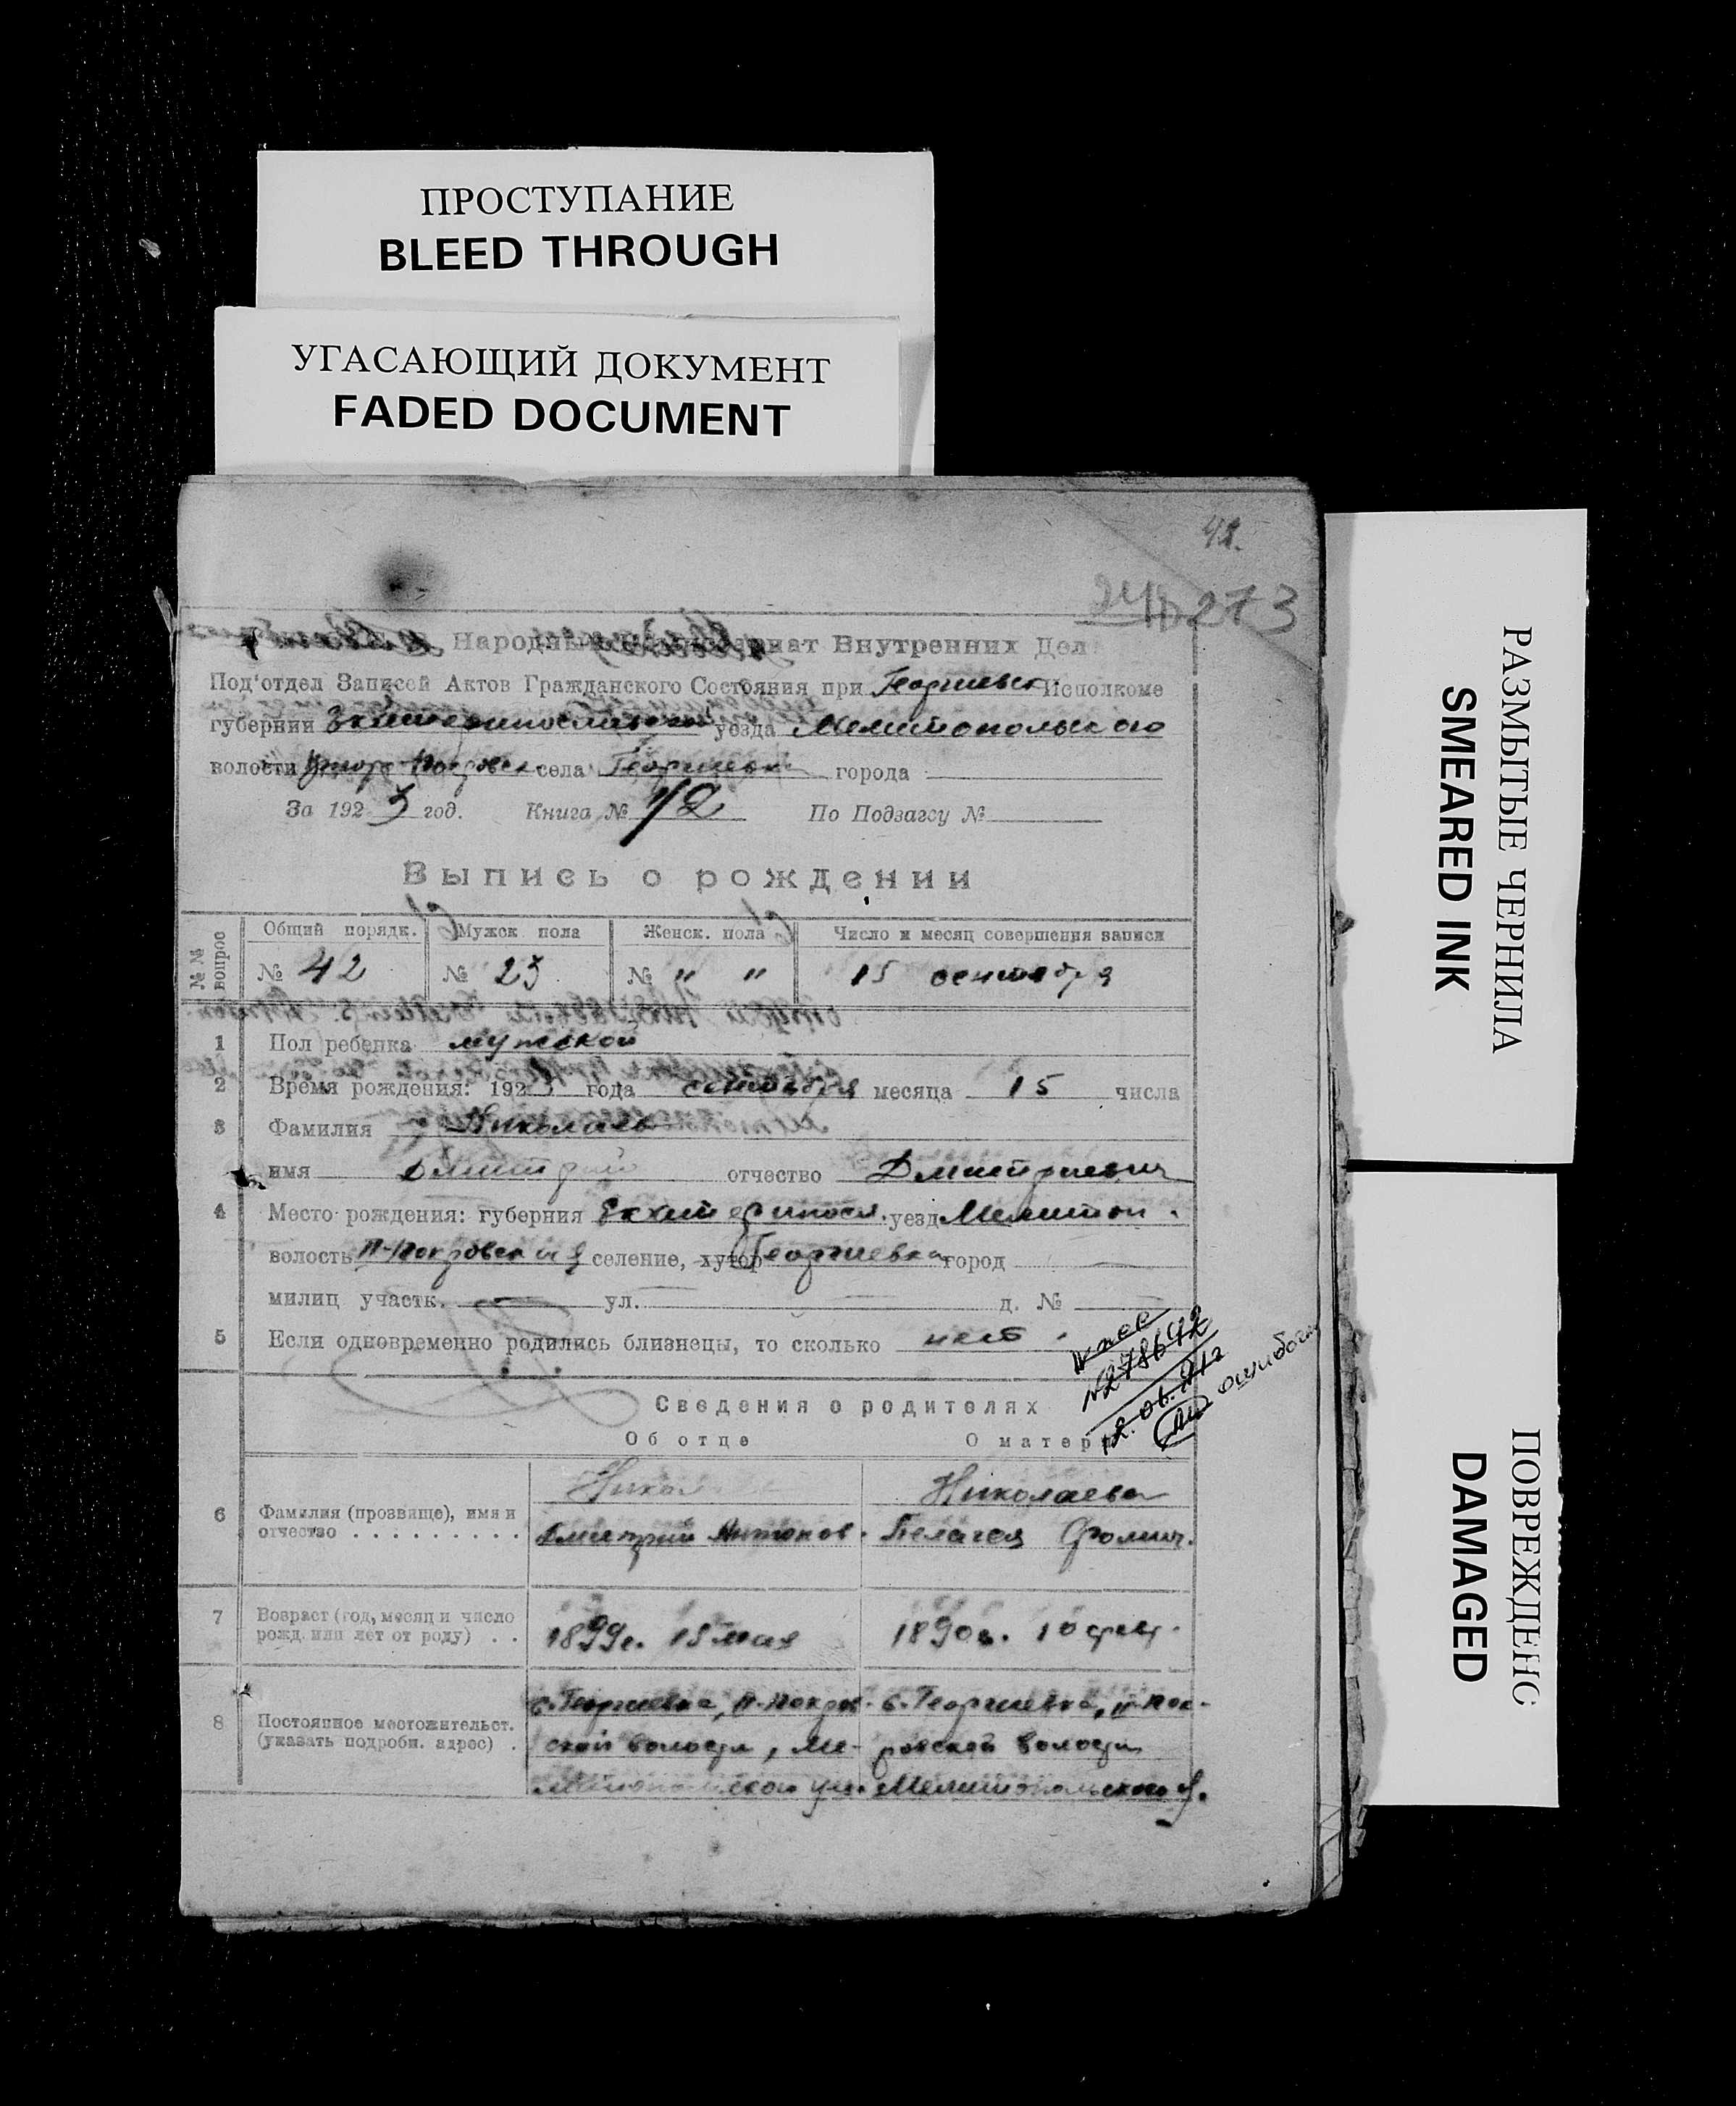 ПРОСТУПАНИЕ
BLEED THROUGH
УГАСАЮЩИЙ ДОКУМЕНТ
FADED DOCUMENT
РАЗМЫТЫЕ ЧЕРНИЛА
SMEARED INK
ПОВРЕЖДЕНС
DAMAGED
42.
273
Народный Комиссариат Внутренних Дел
Под'отдел Записей Актов Гражданского Состояния при Георгиевск. Исполкоме
губернии Екатеринославской уезда Мелитопольского
волости Покровск села Георгиевка города
За 1923 год. Книга № 1/2 По Подзагсу №
Выпись о рождении
№№ вопрос
Общий порядк. Мужск пола Женск. пола Число и месяц совершения записи
№ 42 № 23 № " " 15 сентября
1 Пол ребенка мужской
2 Время рождения: 1923 года сентября месяца 15 числа
3 Фамилия Николаев
имя Дмитрий отчество Дмитриевич
4 Место рождения: губерния Екатериносл. уезд Мелитоп.
волость П-Покровская селение, хутор Георгиевка город
милиц участк. ул. д. №
5 Если одновременно родились близнецы, то сколько нет.
ошибоч
Сведения о родителях
Об отце О матери
6 Фамилия (прозвище), имя и отчество Никол Николаева
Дмитрий Антонов. Пелагея Фомин.
7 Возраст (год, месяц и число рожд. или лет от роду) 1899г. 15 мая 1890г. 10
8 Постоянное местожительст. (указать подробн. адрес)
с. Георгиевка, П-Покров- с. Георгиевка, П-Пок-
ской волости, Ме- ровской волости
литопольского уез. Мелитопольского у.